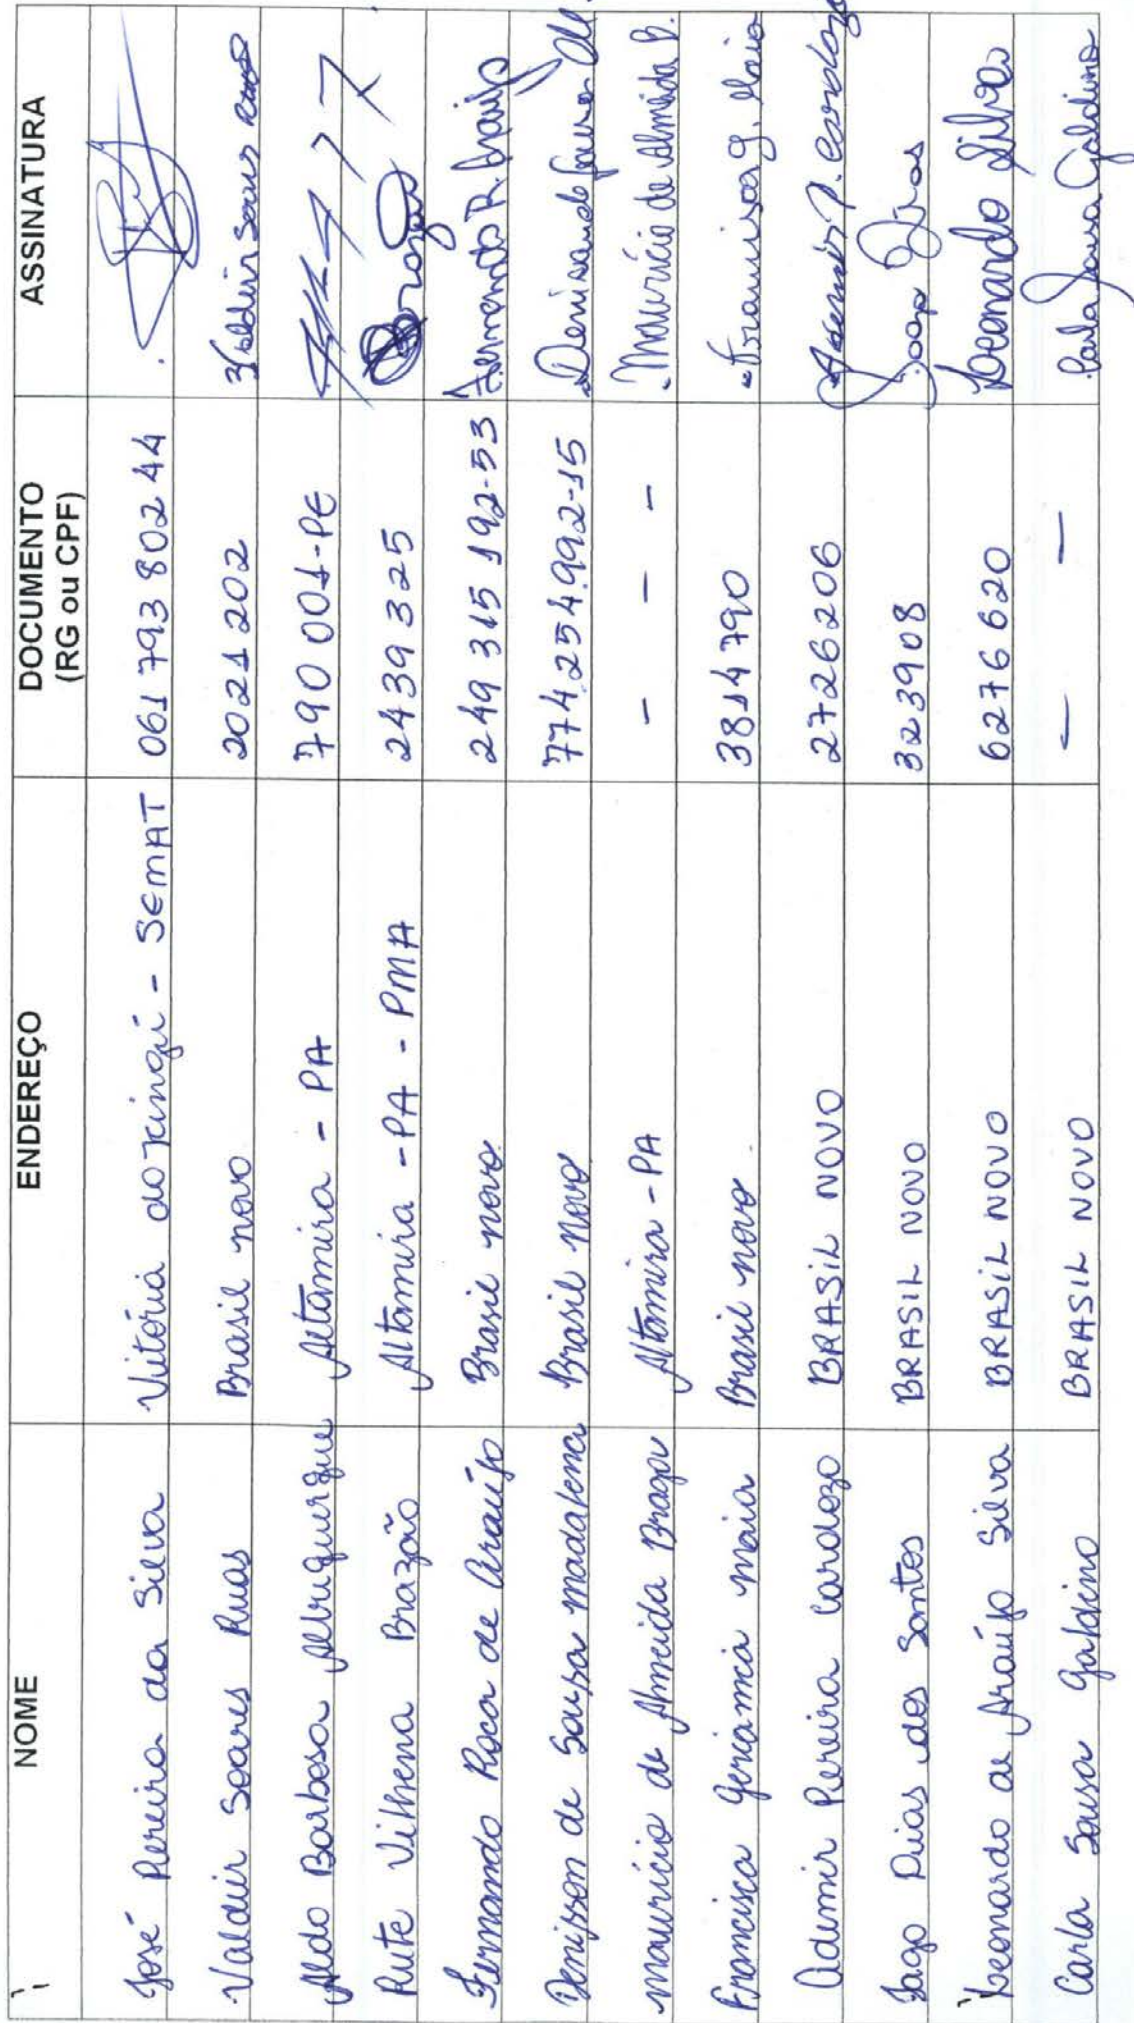 NOME ENDEREÇO DOCUMENTO (RG ou CPF) ASSINATURA
José Pereira da Silva Vitória do xingú - SEMAT 061 793 802 44
Valdir Soares Ruas Brasil novo 2021202 Valdir Soares Ruas
Aldo Barbosa Albuquerque Altamira - PA 790 001-PE
Rute Vilhena Brazão Altamira - PA - PMA 2439325 Brazão
Fernando Roca de Araújo Brasil novo 249 315 192-53 Fernando R. Araújo
Denisson de Sousa madalena Brasil novo 774.254.992-15
maurício de Almeida Braga Altamira - PA - - - Maurício de Almeida B.
Francisca Geriamia maia Brasil novo. 3814790 Francisca g. Maia
Ademir Pereira Cardozo BRASIL NOVO 2726206 Ademir P. Cardozo
Iago Dias dos Santos BRASIL NOVO 323908
Leonardo de Araújo Silva BRASIL NOVO 6276620 Leonardo Silva
Carla Sousa Galdino BRASIL NOVO - - Carla Sousa Galdino